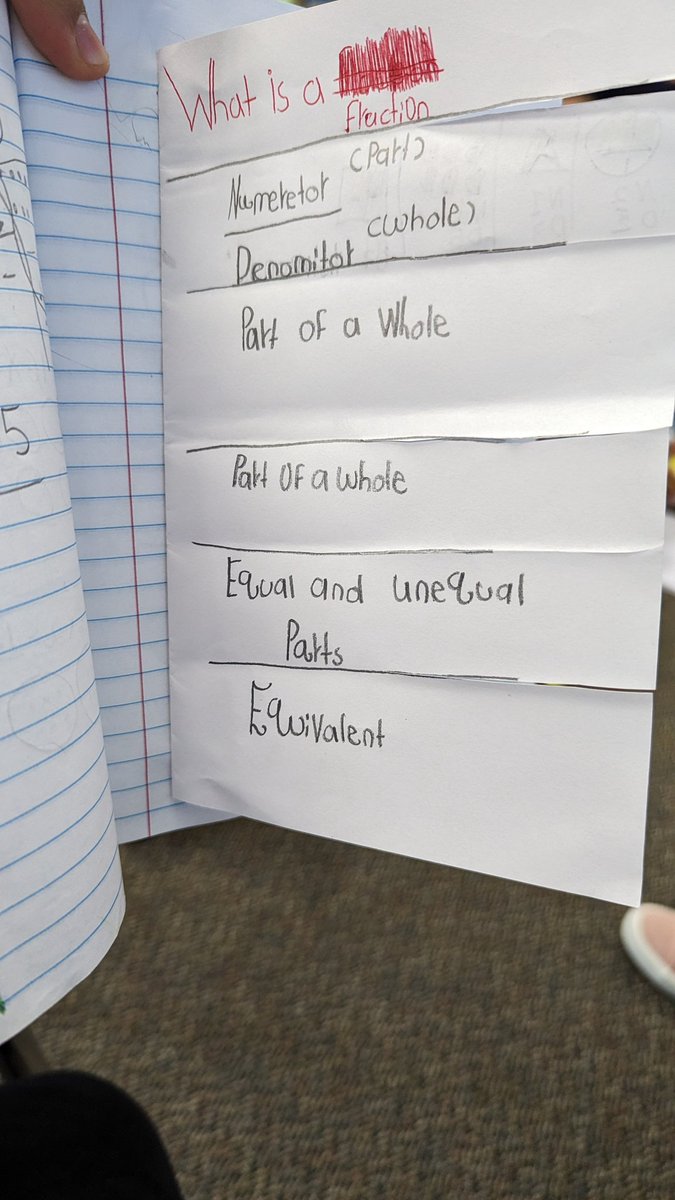 What is a
fraction
(Part)
Numeretor
(whole)
Denomitor
Part of a Whole
Part of a whole
Equal and unequal
Parts
Equivalent
5